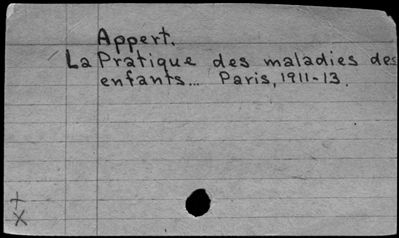 Appert.
La Pratique des maladies des
enfants... Paris, 1911-13.
+
X